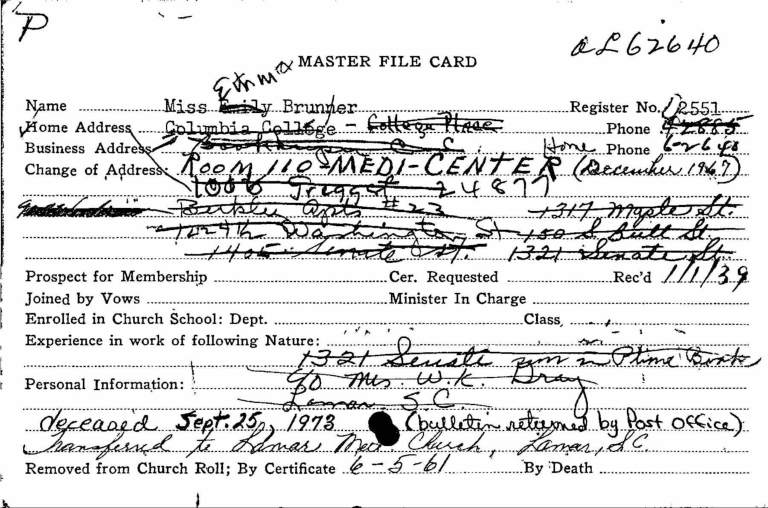 P
AL62640
MASTER FILE CARD
Ethma
Name Miss Emily Brunner Register No. 12551
Home Address Columbia College - College Place Phone 42885
Business Address S. C. Home Phone 6-2640
Change of Address: ROOM 110-MEDI-CENTER (December 1967)
1006 Gregg st 24877
Berkley Apts #23 1317 Maple St.
Washington St 150 S. Bull St.
1405 Senate St. 1321 Senate St.
Prospect for Membership Cer. Requested Rec'd 1/1/39
Joined by Vows Minister In Charge
Enrolled in Church School: Dept. Class
Experience in work of following Nature:
1321 Senate
Personal Information: % Mrs W. K. Gray
Lamar S. C.
deceased Sept. 25, 1973 (bulletin returned by Post Office)
Transferred to Lamar Meth Church, Lamar, S.C.
Removed from Church Roll; By Certificate 6-5-61 By Death